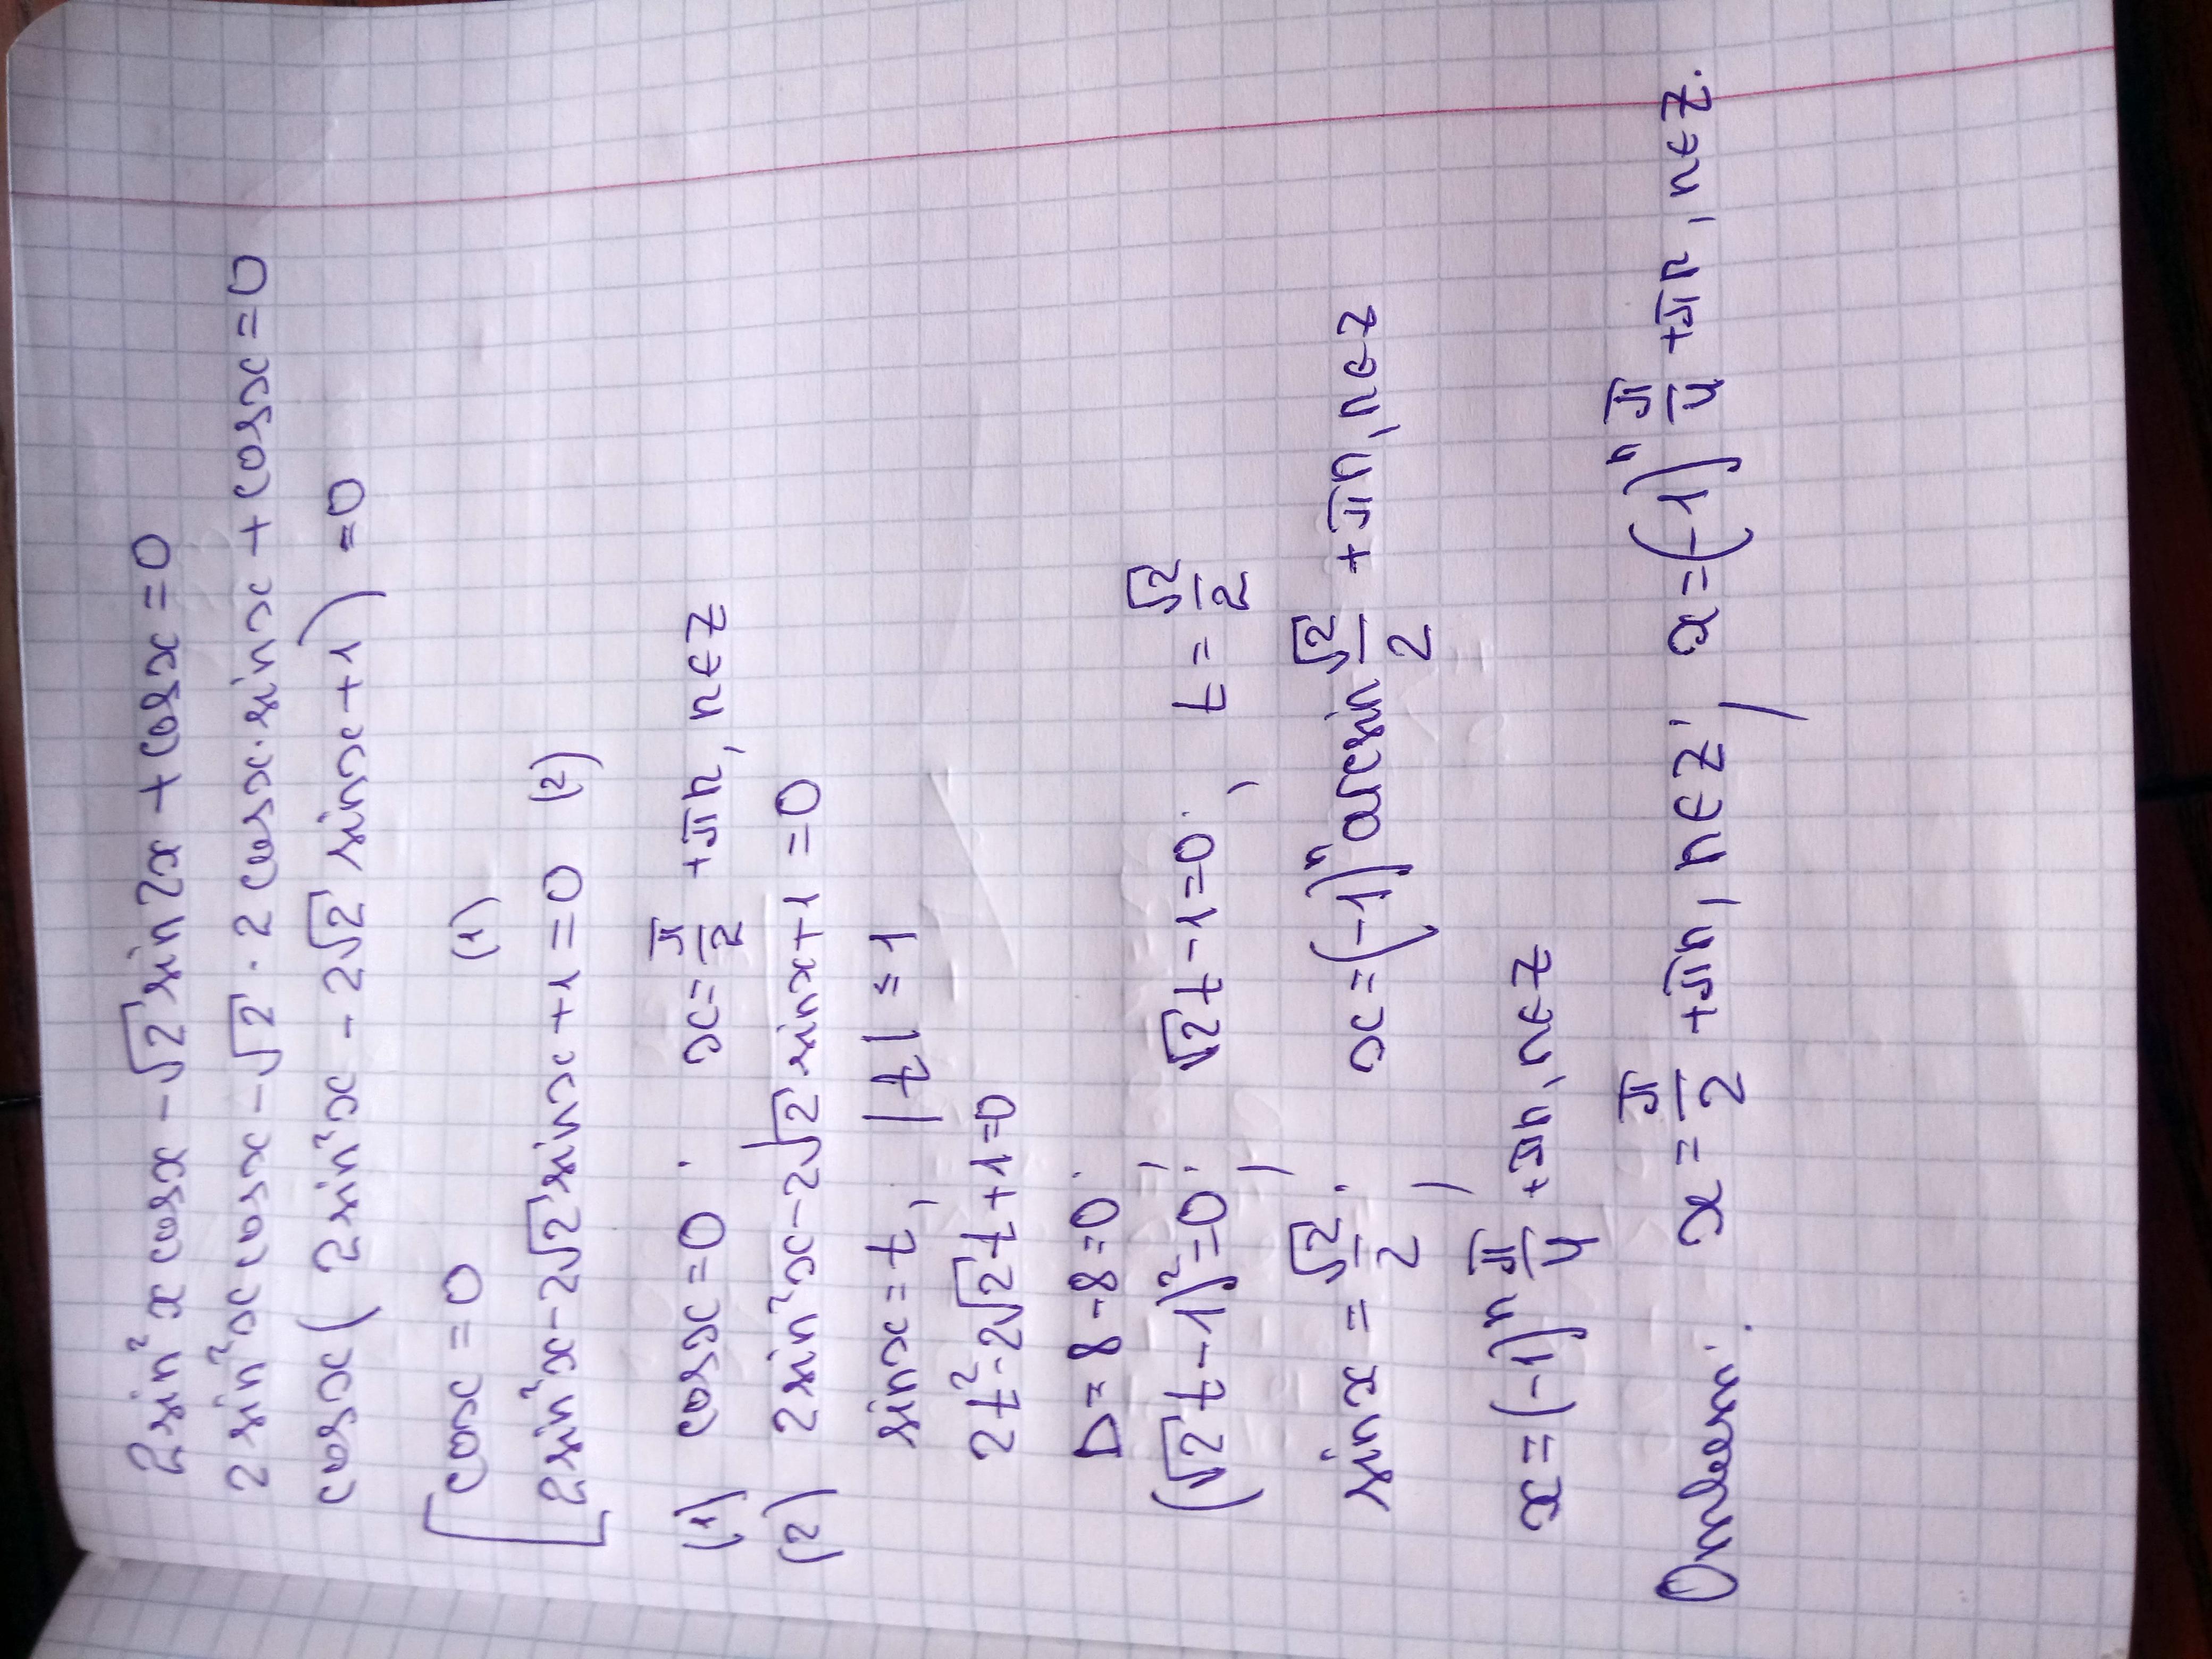 2sin²x cosx - √2 sin2x + cosx = 0
2sin²x cosx - √2 · 2cosx·sinx + cosx = 0
cosx ( 2sin²x - 2√2 sinx + 1 ) = 0
[ cosx = 0 (1)
2sin²x - 2√2 sinx + 1 = 0 (2)
(1) cosx = 0; x = π/2 + πn, n∈Z
(2) 2sin²x - 2√2 sinx + 1 = 0
sinx = t, |t| ≤ 1
2t² - 2√2t + 1 = 0
D = 8 - 8 = 0;
(√2t - 1)² = 0; √2t - 1 = 0; t = √2/2
sinx = √2/2; x = (-1)ⁿ arcsin √2/2 + πn, n∈Z
x = (-1)ⁿ π/4 + πn, n∈Z
Ответ: x = π/2 + πn, n∈Z; x = (-1)ⁿ π/4 + πn, n∈Z.